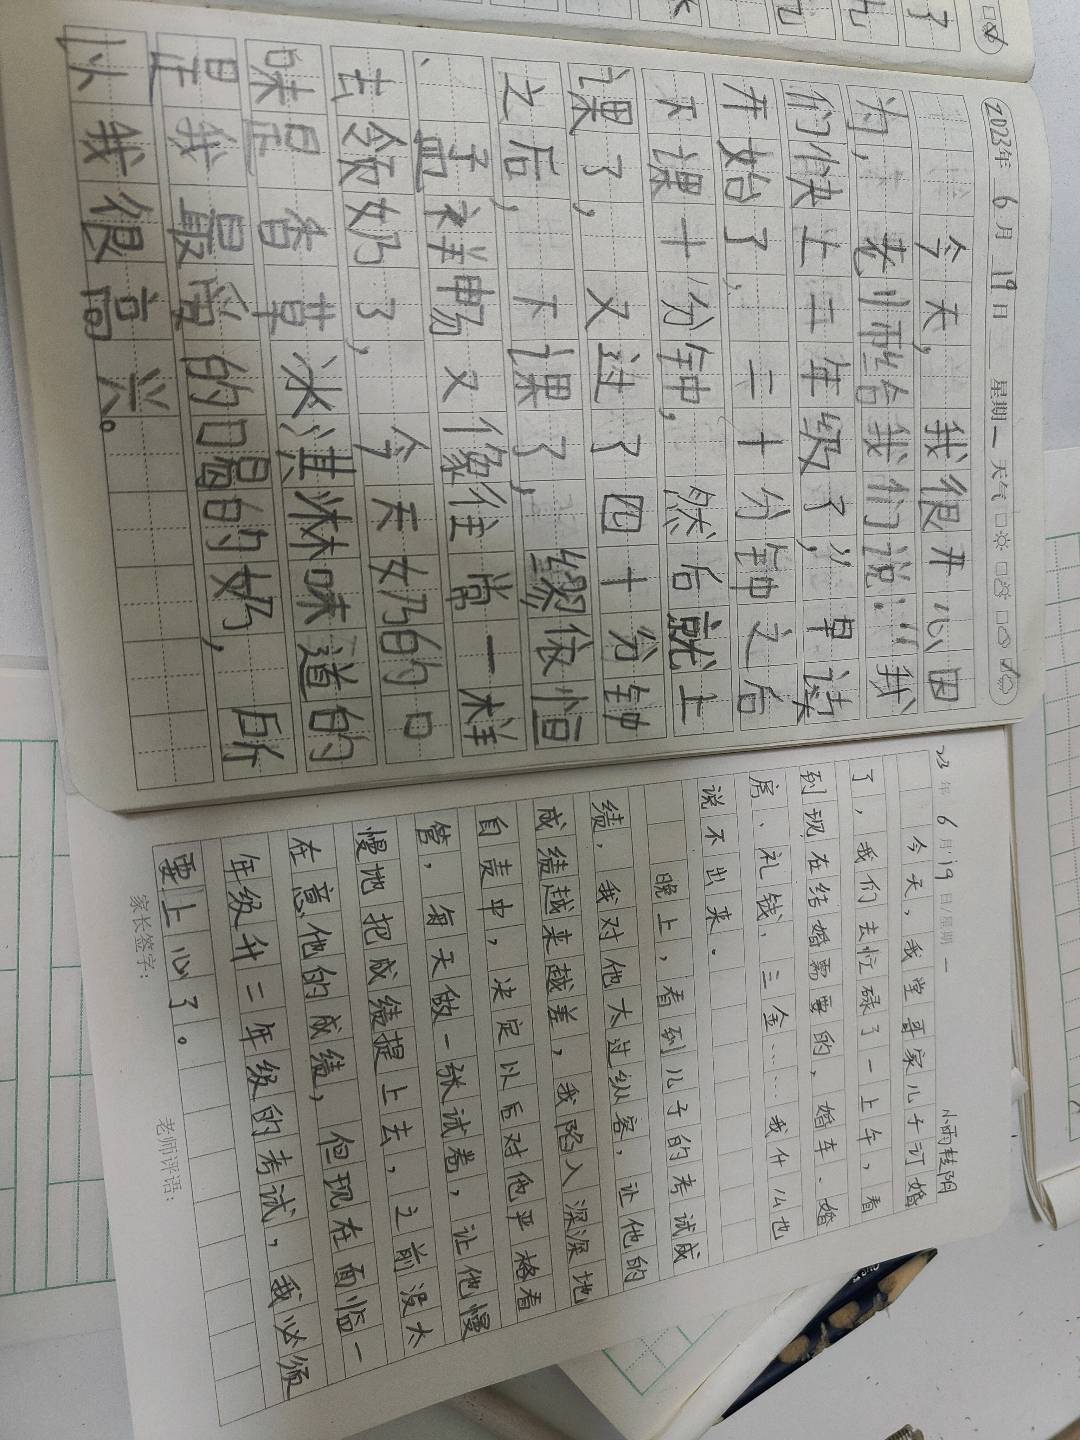 2023年 6月 19日 星期一 天气
今天，我很开心因
为，老师给我们说：“我
们快上二年级了，”早读
开始了，二十分钟之后
下课十分钟，然后就上
课了，又过了四十分钟
之后，下课了，缪依恒
、孟子祥畅又像往常一样
去领奶了，今天奶的口
味是香草冰淇淋味道的
是我最爱的喝的奶，所
以我很高兴。
23年 6月 19日/星期一 小雨转阴
今天，我堂哥家儿子订婚
了，我们去忙碌了一上午，看
到现在结婚需要的，婚车、婚
房、礼钱、三金……我什么也
说不出来。
晚上，看到儿子的考试成
绩，我对他太过纵容，让他的
成绩越来越差，我陷入深深地
自责中，决定以后对他严格看
管，每天做一张试卷，让他慢
慢地把成绩提上去，之前没太
在意他的成绩，但现在面临一
年级升二年级的考试，我必须
要上心了。
家长签字： 老师评语：